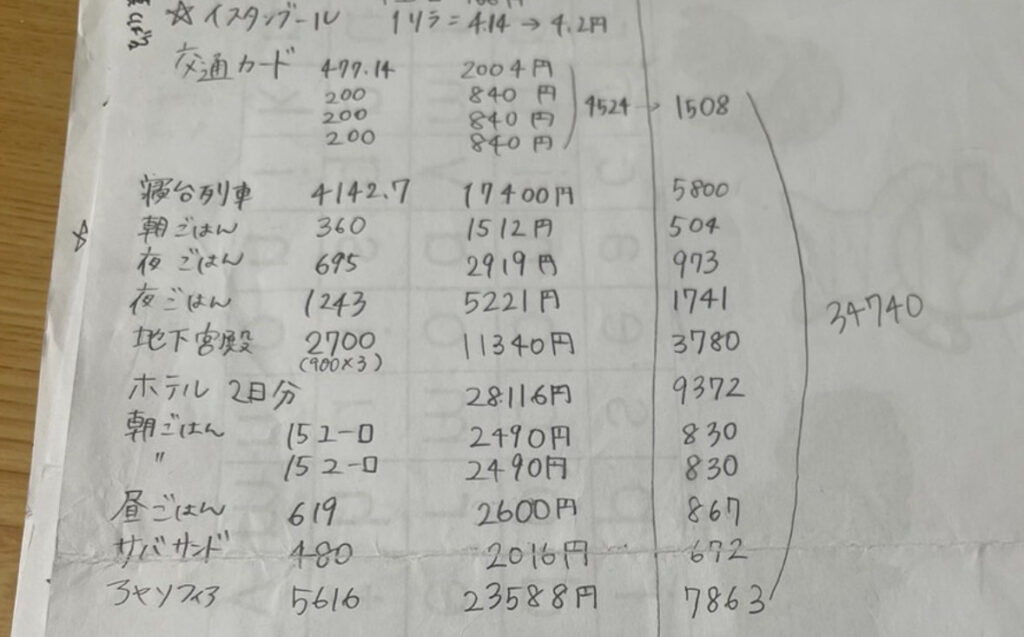 ☆ イスタンブール 1リラ = 4.14 → 4.2円
交通カード 477.14 2004円
200 840 円
200 840 円
200 840 円
4524 → 1508
寝台列車 4142.7 17400円 5800
☆
朝ごはん 360 1512円 504
夜ごはん 695 2919円 973
夜ごはん 1243 5221円 1741
34740
地下宮殿 2700 11340円 3780
(900×3)
ホテル 2日分 28116円 9372
朝ごはん 15ユーロ 2490円 830
〃 15ユーロ 2490円 830
昼ごはん 619 2600円 867
サバサンド 480 2016円 672
アヤソフィア 5616 23588円 7863